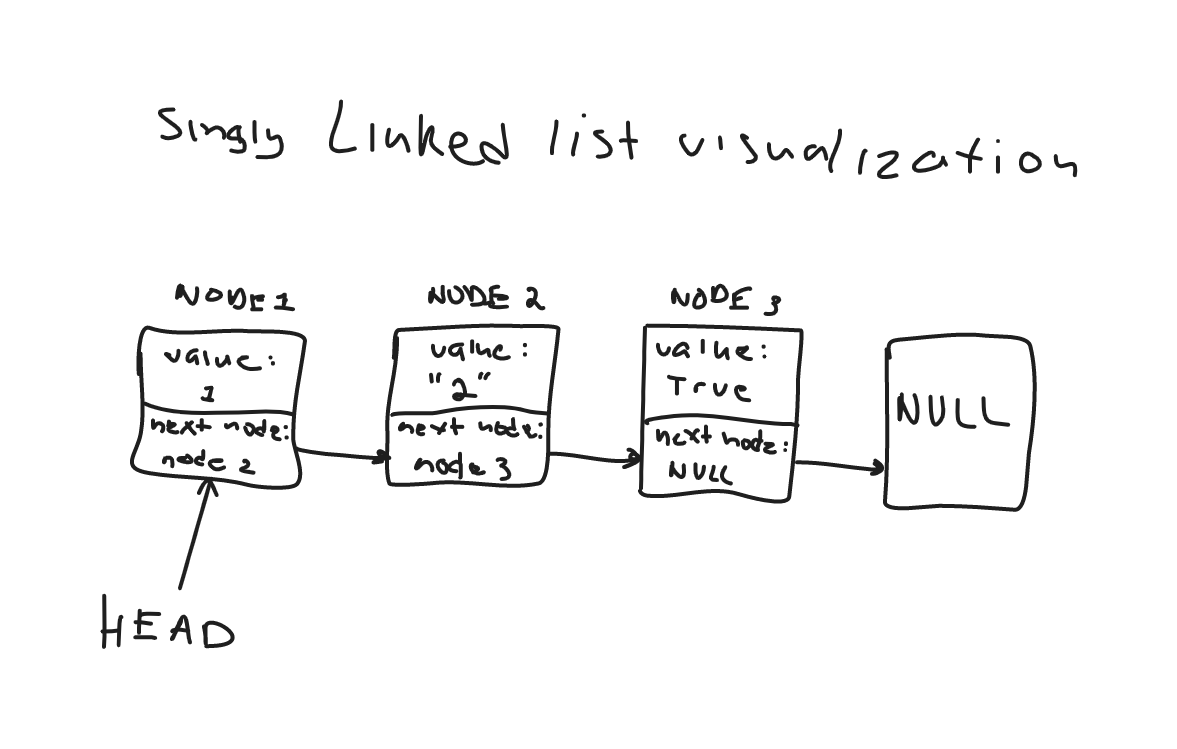 Singly Linked list visualization
NODE 1
NODE 2
NODE 3
value:
1
next node:
node 2
value:
"2"
next node:
node 3
value:
True
next node:
NULL
NULL
HEAD